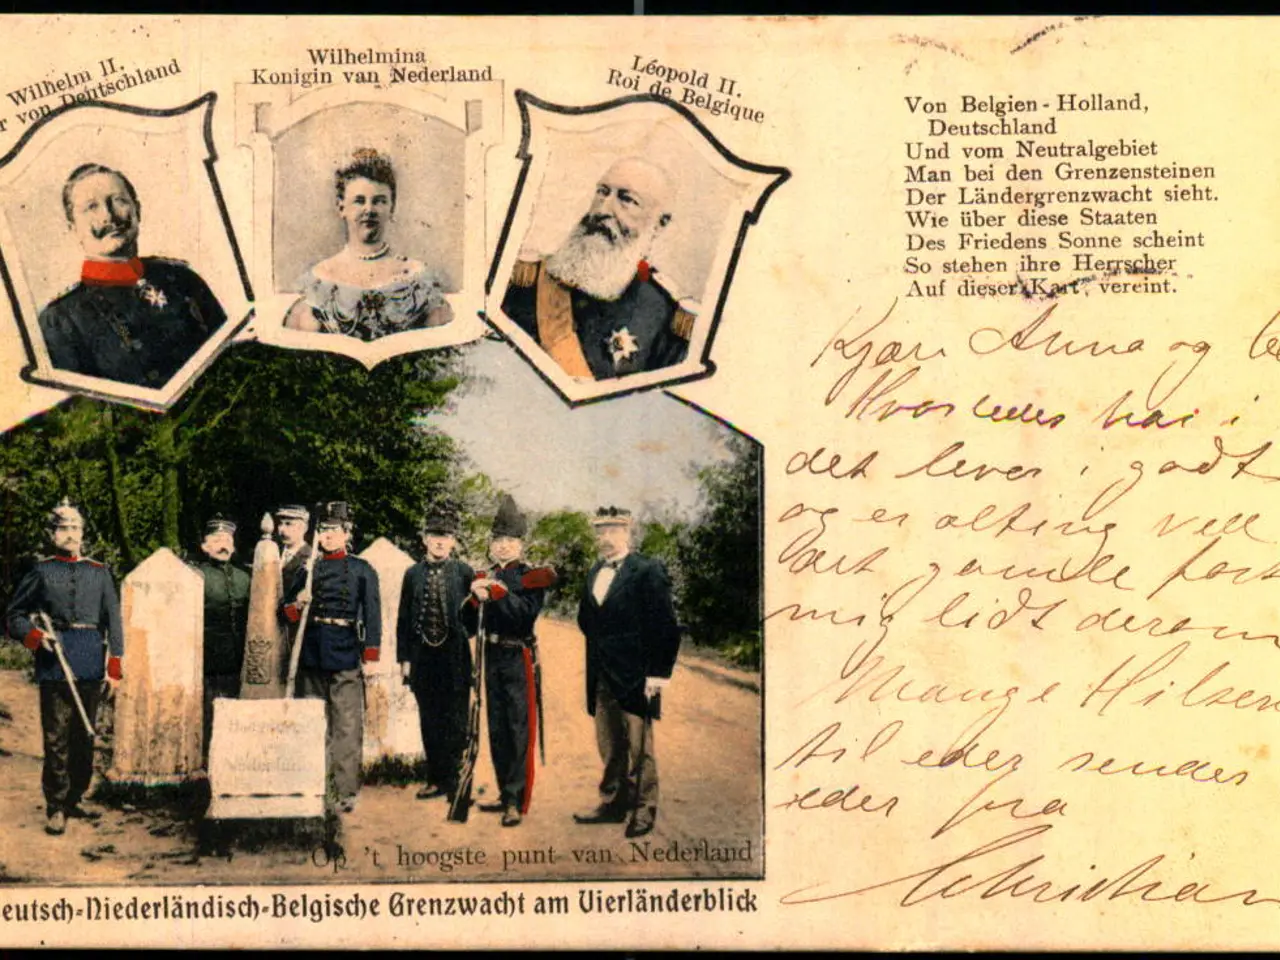 Wilhelm II.
r von Deutschland
Wilhelmina
Konigin van Nederland
Léopold II.
Roi de Belgique
Von Belgien - Holland,
Deutschland
Und vom Neutralgebiet
Man bei den Grenzensteinen
Der Ländergrenzwacht sieht.
Wie über diese Staaten
Des Friedens Sonne scheint
So stehen ihre Herrscher
Auf dieser Kart' vereint.
Kjære Anna og
Hvorledes har i
det lever i godt
og er alting vell
gamle
mig lidt derom
Mange Hilsen
til eder sendes
eder fra
Christian
Nederland
Op 't hoogste punt van Nederland
eutsch-Niederländisch-Belgische Grenzwacht am Vierländerblick